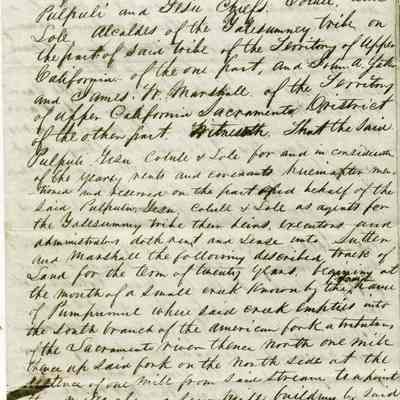 Pulpuli and Gesu Chiefs. Colule and
Sole Alcaldes of the Yalesumney tribe on
the part of said tribe of the Territory of Upper
California of the one part, and John A. Sutter
and James W. Marshall of the Territory
of Upper California Sacramento District
of the other part. Witnesseth. That the said
Pulpuli, Gesu, Colule & Sole for and in consideration
of the yearly rents and covenants hereinafter men
tioned and reserved on the part and behalf of the
said Pulpuli, Gesu, Colule & Sole as agents for
the Yalesumney tribe their heirs, executors and
administrators doth rent and lease unto Sutter
and Marshall the following described track of
Land for the term of twenty years, beginning at
the mouth of a small creek known by the name
of Pumpumul where said creek empties into
the South branch of the American fork a tributary
of the Sacramento river thence North one mile
thence up said fork on the North side at the
distance of one mile from said stream to a point